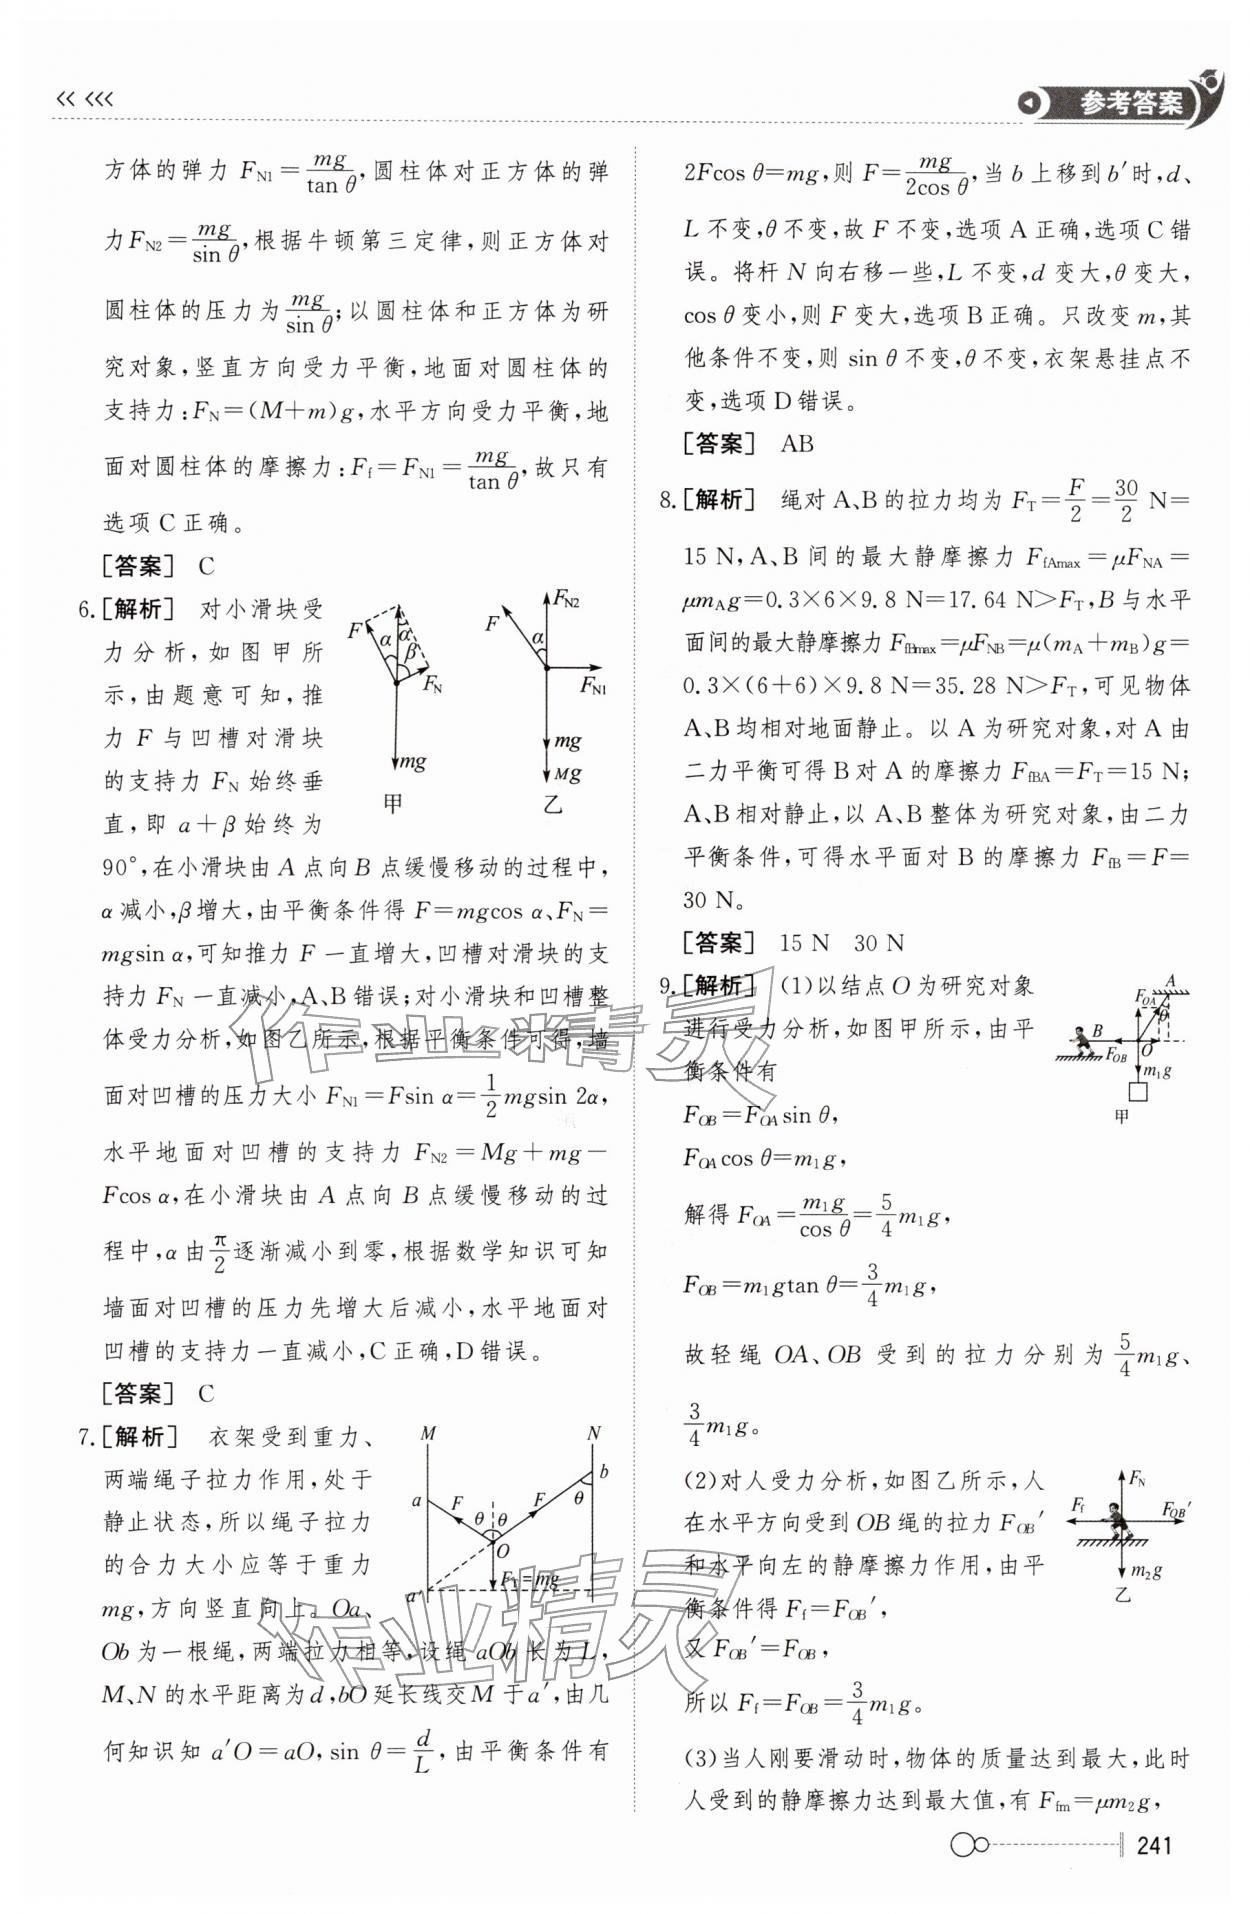 参考答案
方体的弹力 F_N1=mg/tan θ,圆柱体对正方体的弹
力F_N2=mg/sin θ,根据牛顿第三定律,则正方体对
圆柱体的压力为mg/sin θ;以圆柱体和正方体为研
究对象,竖直方向受力平衡,地面对圆柱体的
支持力:F_N=(M+m)g,水平方向受力平衡,地
面对圆柱体的摩擦力:F_f=F_N1=mg/tan θ,故只有
选项C正确。
[答案] C
6.[解析] 对小滑块受
力分析,如图甲所
示,由题意可知,推
力 F 与凹槽对滑块
的支持力 F_N 始终垂
直,即 α+β始终为
F α α β F_N mg 甲
F α F_N2 F_N1 mg Mg 乙
90°,在小滑块由A点向B点缓慢移动的过程中,
α减小,β增大,由平衡条件得 F=mgcos α、F_N=
mgsin α,可知推力 F 一直增大,凹槽对滑块的支
持力 F_N 一直减小,A、B错误;对小滑块和凹槽整
体受力分析,如图乙所示,根据平衡条件可得,墙
面对凹槽的压力大小 F_N1=Fsin α=1/2mgsin 2α,
水平地面对凹槽的支持力 F_N2=Mg+mg-
Fcos α,在小滑块由A点向B点缓慢移动的过
程中,α由π/2逐渐减小到零,根据数学知识可知
墙面对凹槽的压力先增大后减小,水平地面对
凹槽的支持力一直减小,C正确,D错误。
[答案] C
7.[解析] 衣架受到重力、
两端绳子拉力作用,处于
静止状态,所以绳子拉力
的合力大小应等于重力
mg,方向竖直向上。Oa、
M N a b F F θ θ θ O F_1=mg a′
Ob为一根绳,两端拉力相等,设绳aOb长为L,
M、N的水平距离为d,bO延长线交M于a′,由几
何知识知 a′O=aO,sin θ=d/L,由平衡条件有
2Fcos θ=mg,则F=mg/2cos θ,当b上移到b′时,d、
L不变,θ不变,故F不变,选项A正确,选项C错
误。将杆N向右移一些,L不变,d变大,θ变大,
cos θ变小,则F变大,选项B正确。只改变m,其
他条件不变,则 sin θ不变,θ不变,衣架悬挂点不
变,选项D错误。
[答案] AB
8.[解析] 绳对A、B的拉力均为 F_T=F/2=30/2 N=
15 N,A、B间的最大静摩擦力 F_fAmax=μF_NA=
μm_Ag=0.3×6×9.8 N=17.64 N>F_T,B与水平
面间的最大静摩擦力 F_fBmax=μF_NB=μ(m_A+m_B)g=
0.3×(6+6)×9.8 N=35.28 N>F_T,可见物体
A、B均相对地面静止。以A为研究对象,对A由
二力平衡可得B对A的摩擦力F_fBA=F_T=15 N;
A、B相对静止,以A、B整体为研究对象,由二力
平衡条件,可得水平面对B的摩擦力F_fB=F=
30 N。
[答案] 15 N 30 N
9.[解析] (1)以结点O为研究对象
进行受力分析,如图甲所示,由平
衡条件有
F_OA A θ B F_OB O m_1g 甲
F_OB=F_OAsin θ,
F_OAcos θ=m_1g,
解得F_OA=m_1g/cos θ=5/4m_1g,
F_OB=m_1gtan θ=3/4m_1g,
故轻绳OA、OB受到的拉力分别为5/4m_1g、
3/4m_1g。
(2)对人受力分析,如图乙所示,人
在水平方向受到OB绳的拉力F_OB′
和水平向左的静摩擦力作用,由平
衡条件得 F_f=F_OB′,
F_N F_f F_OB′ m_2g 乙
又F_OB′=F_OB,
所以F_f=F_OB=3/4m_1g。
(3)当人刚要滑动时,物体的质量达到最大,此时
人受到的静摩擦力达到最大值,有F_fm=μm_2g,
241
作业精灵
作业精灵